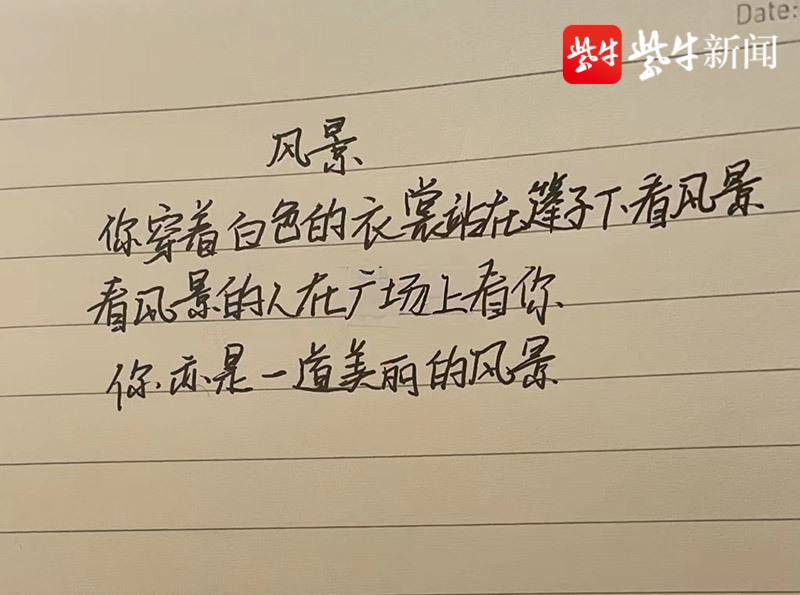 Date:
紫牛 紫牛新闻
风景
你穿着白色的衣裳站在篷子下看风景
看风景的人在广场上看你
你亦是一道美丽的风景